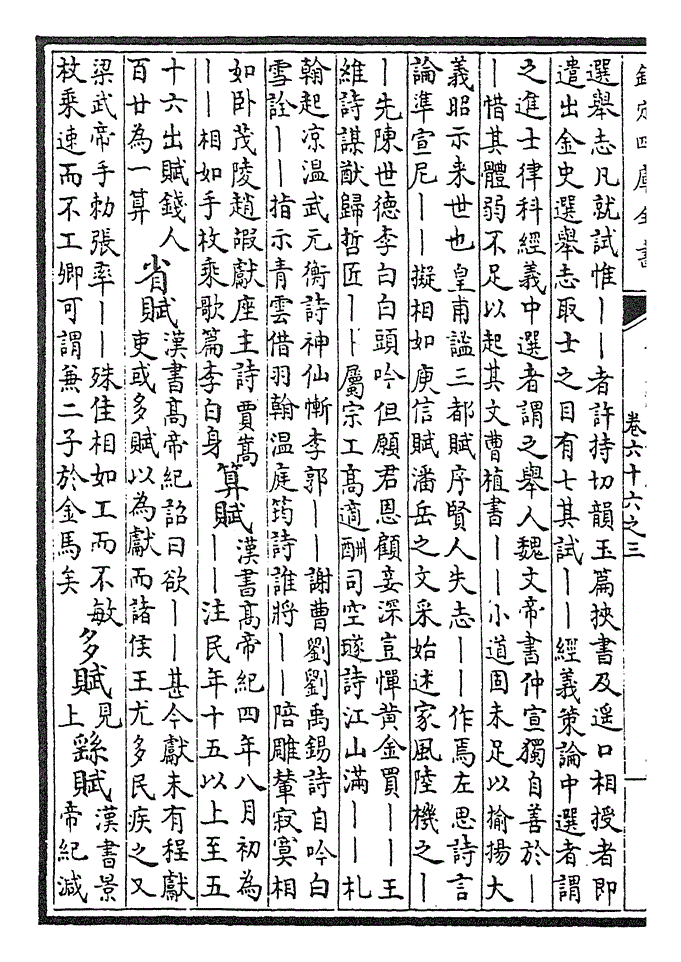 欽定四庫全書
卷六十六之三
選舉志凡就試惟||者許持切韻玉篇挾書及遥口相授者即
遣出金史選舉志取士之目有七其試||經義策論中選者謂
之進士律科經義中選者謂之舉人魏文帝書仲宣獨自善於|
|惜其體弱不足以起其文曹植書||小道固未足以揄揚大
義昭示来世也皇甫謐三都賦序賢人失志||作焉左思詩言
論準宣尼||擬相如庾信賦潘岳之文采始述家風陸機之|
|先陳世德李白白頭吟但願君恩顧妾深豈憚黄金買||王
維詩謀猷歸哲匠||屬宗工高適酬司空璲詩江山滿||札
翰起凉温武元衡詩神仙慚李郭||謝曹劉劉禹錫詩自吟白
雪詮||指示青雲借羽翰温庭筠詩誰將||陪雕輦寂寞相
如卧茂陵趙嘏獻座主詩賈嵩
||相如手枚乗歌篇李白身
算賦
漢書高帝紀四年八月初為
||注民年十五以上至五
十六出賦錢人
百廿為一算
省賦
漢書高帝紀詔曰欲||甚今獻未有程獻
吏或多賦以為獻而諸侯王尤多民疾之又
梁武帝手勑張率||殊佳相如工而不敏
枚乗速而不工卿可謂兼二子於金馬矣
多賦
見
上
繇賦
漢書景
帝紀減